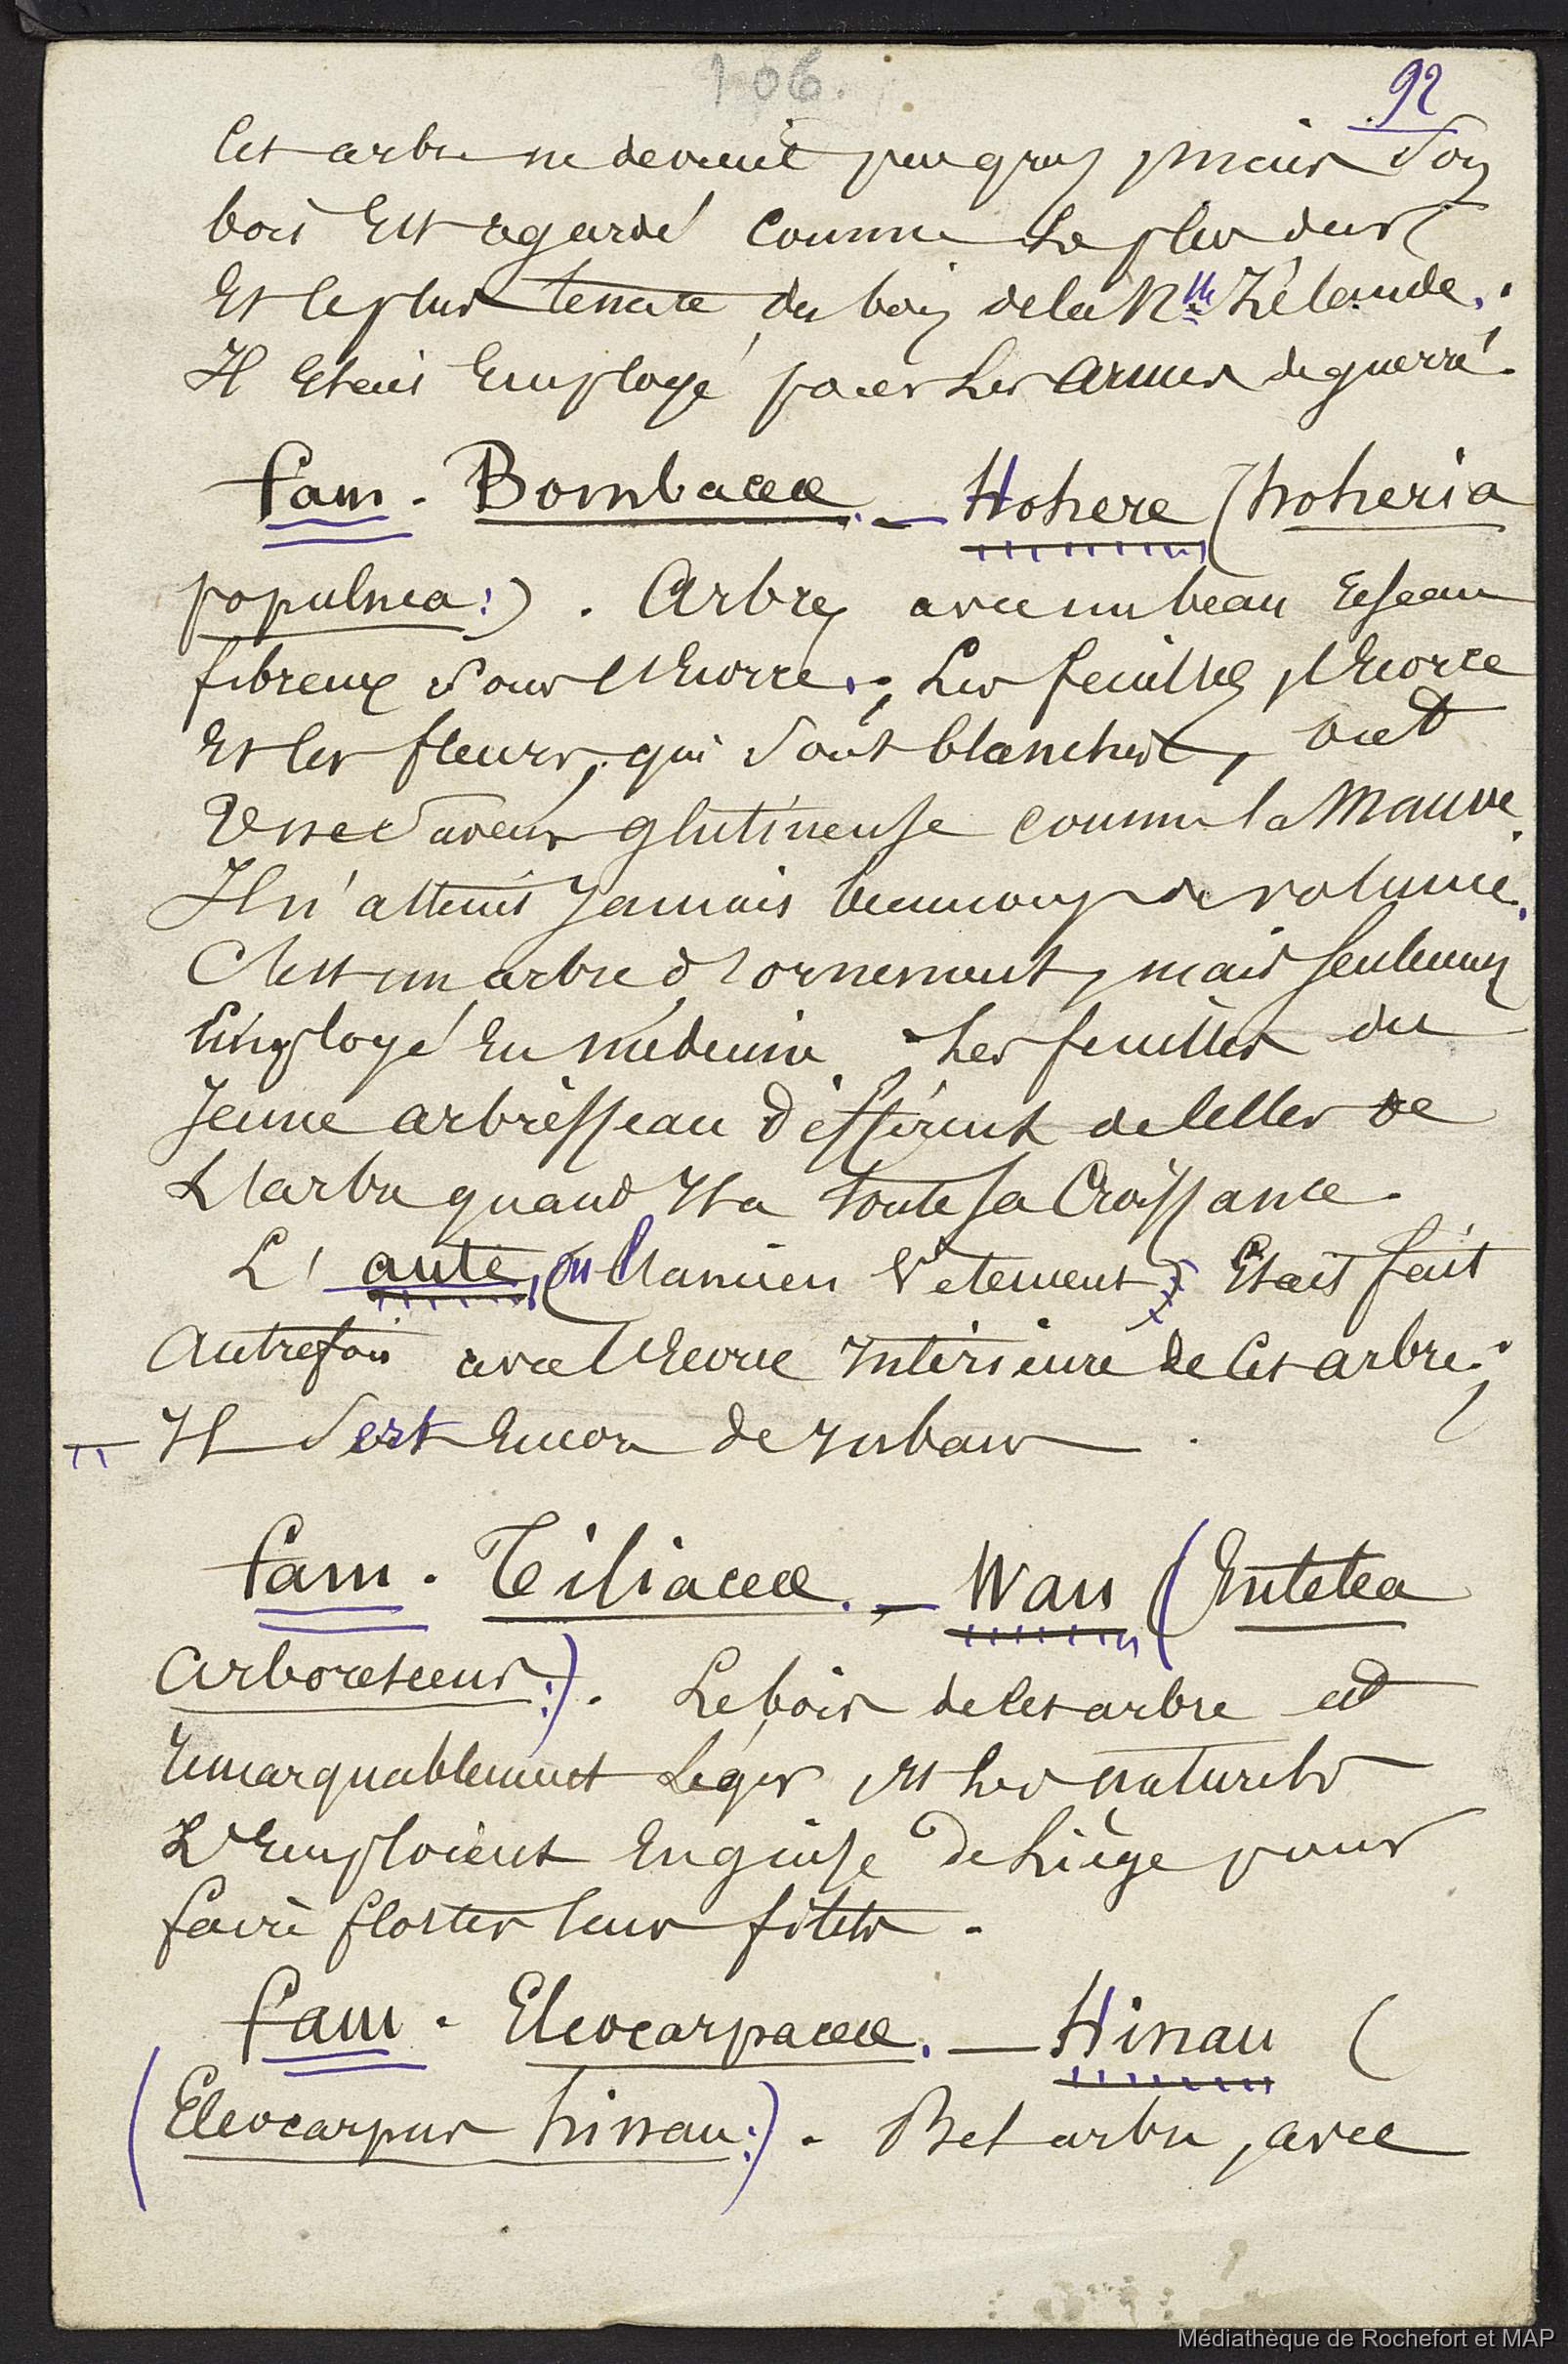 106.
92
Cet arbre ne devient pas gros, mais son
bois Est regardé comme le plus dur
Et le plus tenace du bois de la Nlle Zélande.;
Il Etait Employé pour les armes de guerre.
fam. Bombaceæ. — Hohere (hoheria
populnea:). Arbre, avec un beau réseau
fibreux sous l'Ecorce.; Les feuilles, l'Ecorce
Et les fleurs, qui sont blanches, ont
Une saveur glutineuse comme la Mauve.
Il n'atteint Jamais beaucoup de volume.
C'est un arbre d'ornement, mais seulement
Employé En médecine. Les feuilles du
Jeune arbrisseau diffèrent de celles de
L'arbre quand Il a toute sa Croissance.
L' aute, (ou l'ancien Vetement) Etait fait
Autrefois avec l'Ecorce Intérieure de Cet arbre.;
Il sert Encore de rubans.
fam. Tiliaceæ. — Wau (Entelea
Arborescens:). Le bois de Cet arbre est
Remarquablement Léger, Et les naturels
L'Emploient En guise de Liège pour
faire flotter leurs filets.
fam. Eleocarpaceæ. — Hinau (
(Eleocarpus hinau:). Bel arbre, avec
Médiathèque de Rochefort et MAP